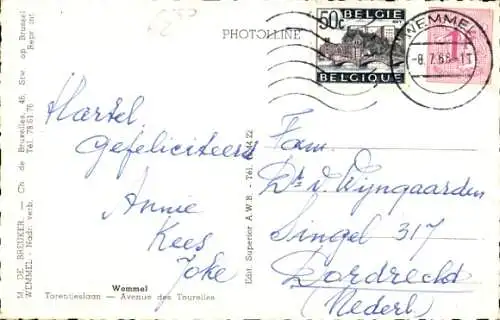 PHOTOLINE
50c
BELGIE
BELGIQUE
1F
WEMMEL
-8.7.68-11
Hartel.
Gefeliciteerd
Annie
Kees
Joke
Fam.
Dr v. Wijngaarden
Singel 317
Dordrecht
(Nederl)
Wemmel
Torentjeslaan — Avenue des Tourelles
M. DE BREUKER. — Ch. de Bruxelles, 46, Stw. op Brussel
WEMMEL - Nadr. verb. Tél. 78.61.76 Repr. int.
Edit. Superior A.W.B. - Tél. 44 22